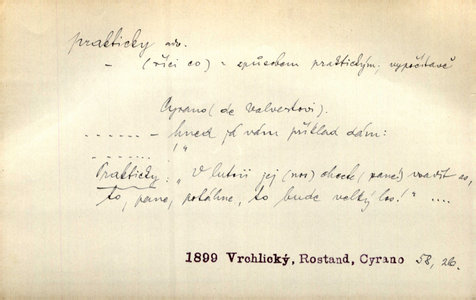 prakticky adv.
– (říci co) = způsobem praktickým. vypočítavě
Cyrano (de Valvertovi).
. . . . . . – hned já vám příklad dám:
. . . . . . . "
Prakticky: „V luterii jej (nos) chcete (pane) vsadit as,
to, pane, potáhne, to bude velký los!" ....
1899 Vrchlický, Rostand, Cyrano 58, 26.